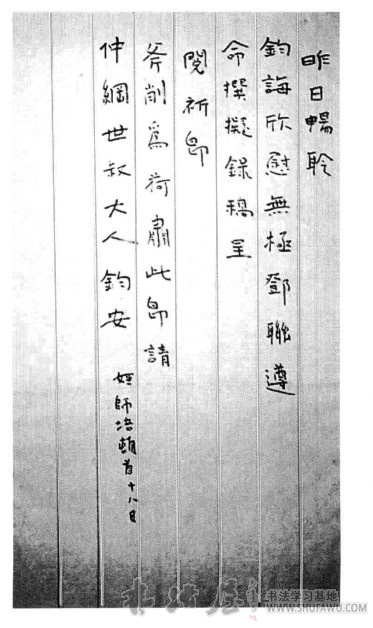 昨日暢聆
鈞誨欣慰無極鄧聯遵
命撰擬錄稿呈
閱祈即
斧削為荷肅此即請
仲綱世叔大人鈞安
姪師培頓首十八日
书法学习基地
WWW.SHUFAWU.COM